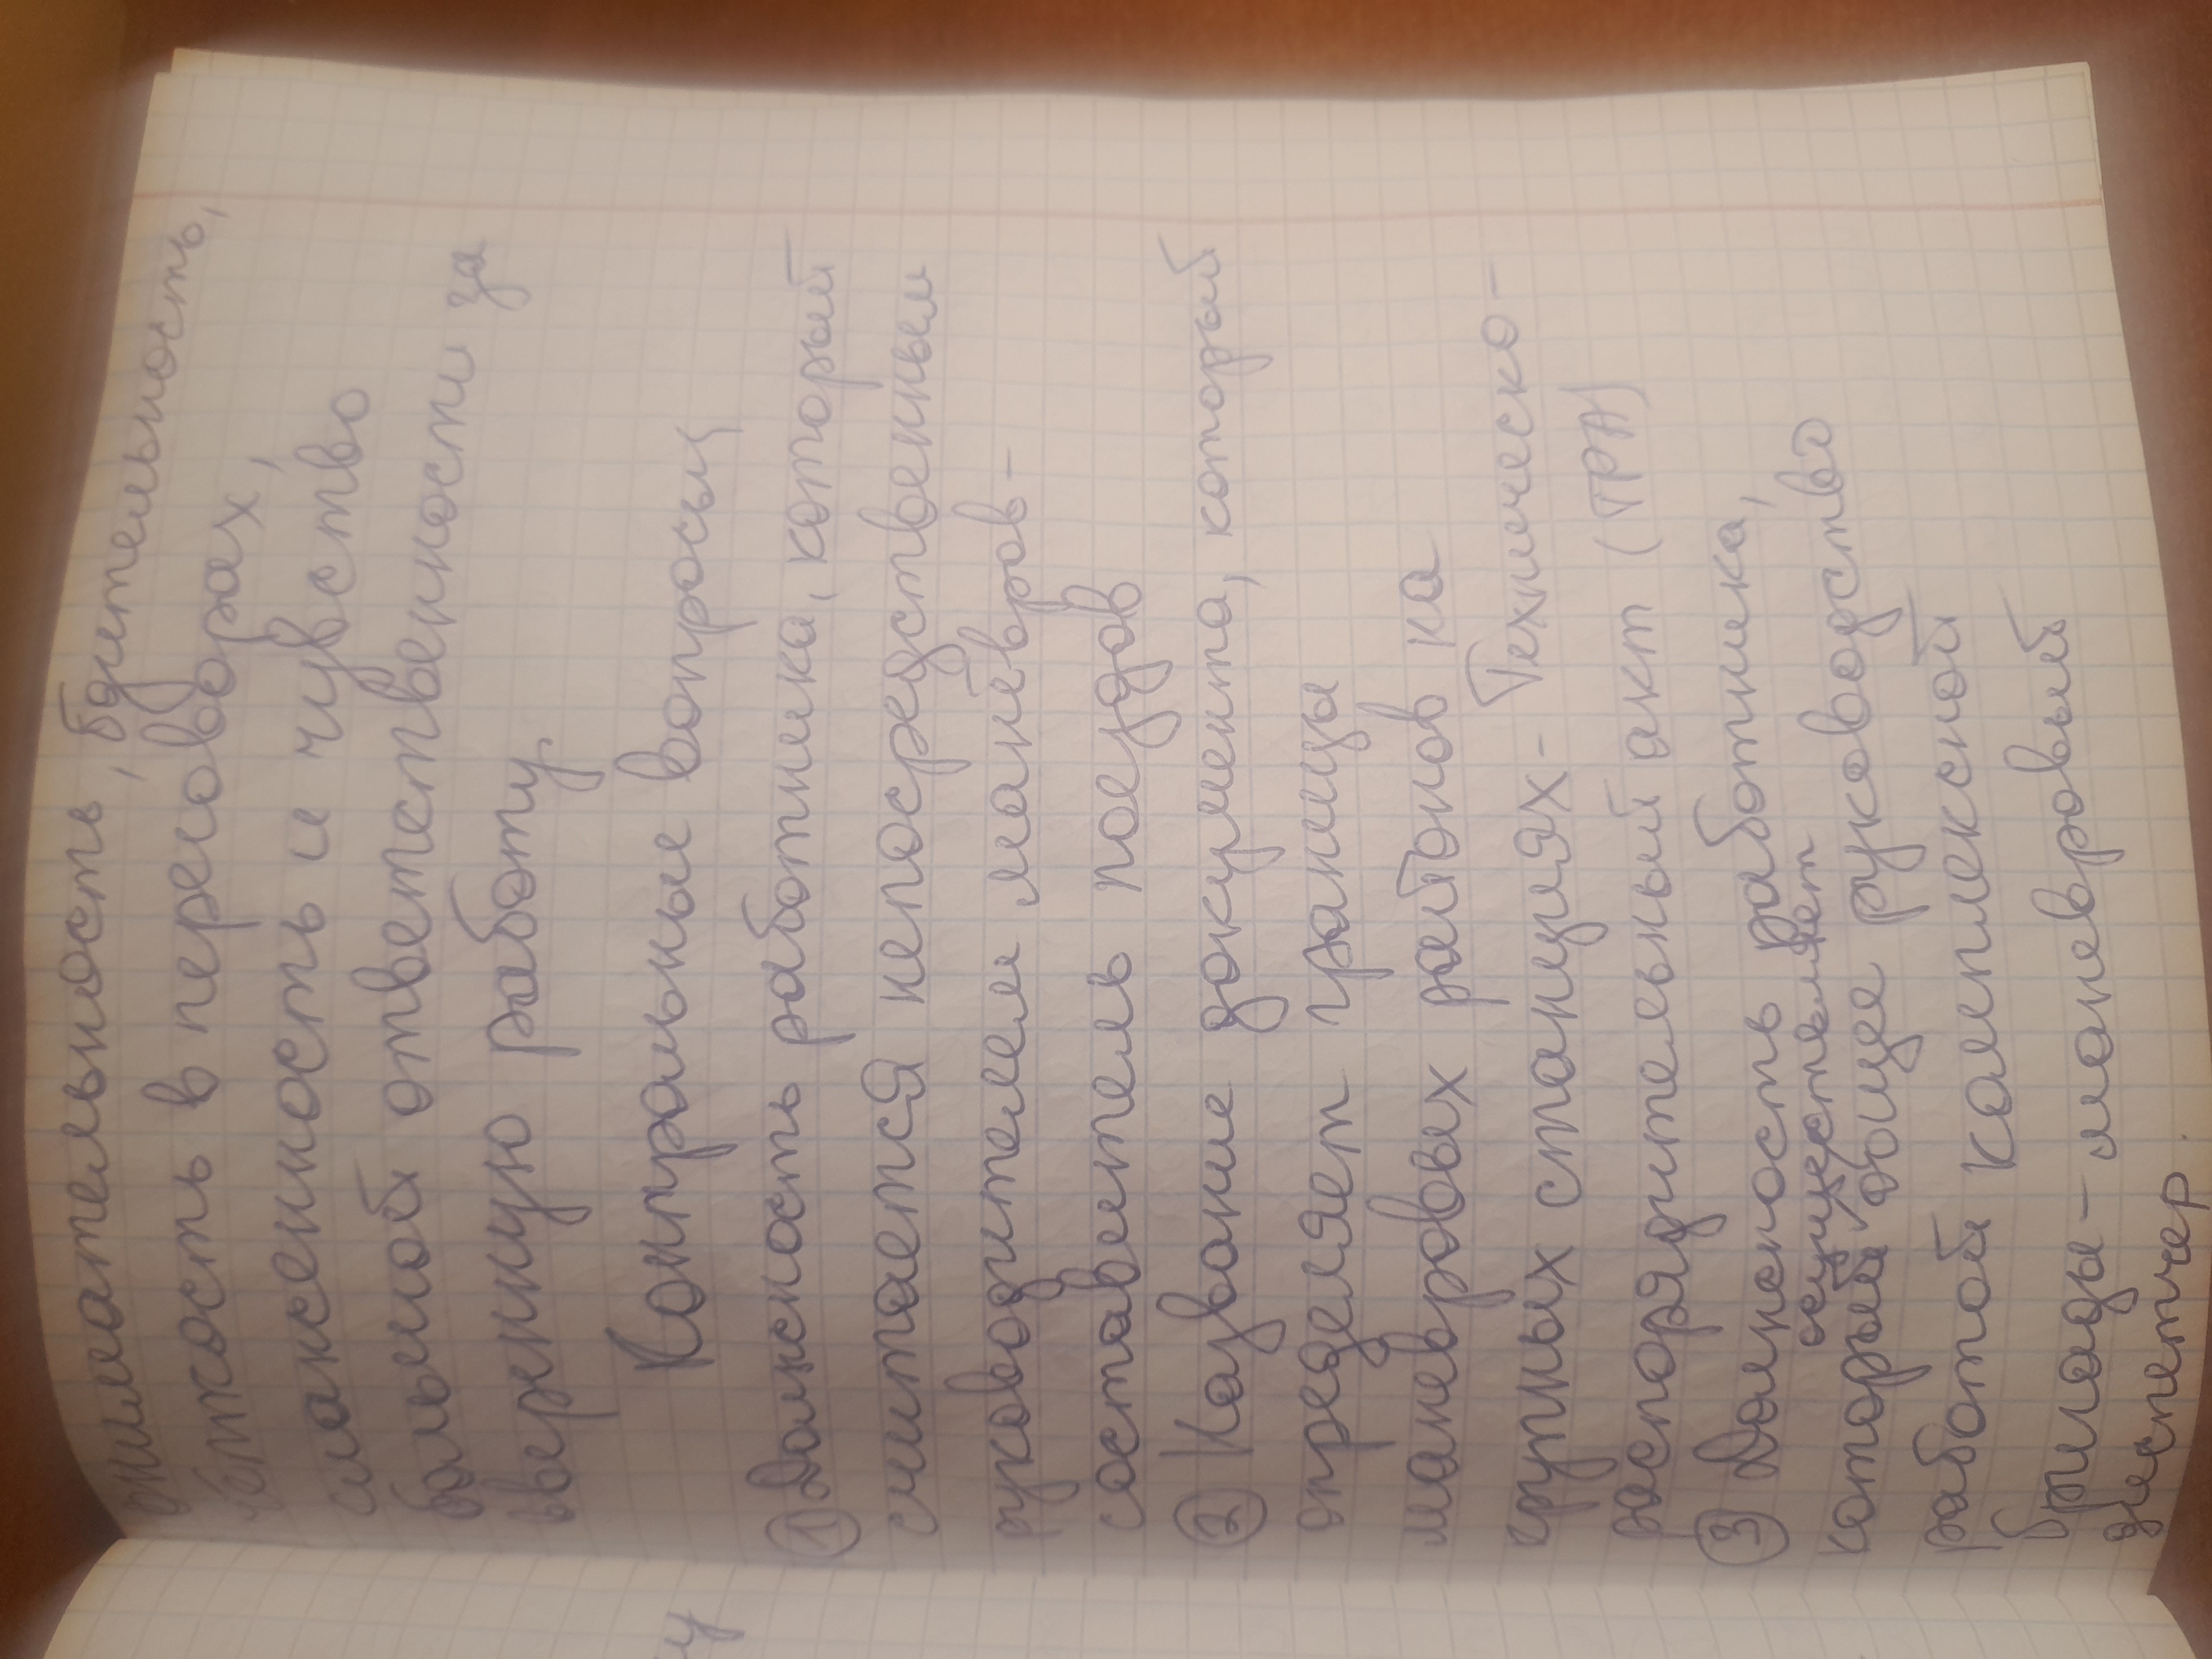 внимательность, бдительность,
чёткость в переговорах,
слаженность и чувство
большой ответственности за
вверенную работу.
Контрольные вопросы
① Должность работника, который
считается непосредственным
руководителем манёвров -
составитель поездов
② Название документа, который
определяет границы
маневровых районов на
крупных станциях - Техническо-
распорядительный акт (ТРА)
③ Должность работника,
осуществляет
который общее руководство
работой комплексной
бригады - маневровый
диспетчер